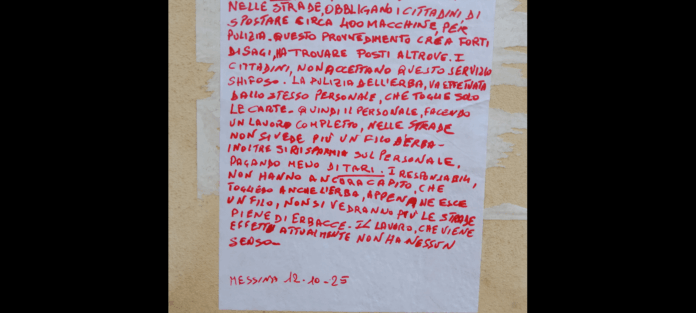 NELLE STRADE, OBBLIGANO I CITTADINI, DI
SPOSTARE CIRCA 400 MACCHINE, PER
PULIZIA. QUESTO PROVVEDIMENTO CREA FORTI
DISAGI, A TROVARE POSTI ALTROVE. I
CITTADINI, NON ACCETTANO QUESTO SERVIZIO
SHIFOSO. LA PULIZIA DELL'ERBA, VA EFFETTUATA
DALLO STESSO PERSONALE, CHE TOGLIE SOLO
LE CARTE. QUINDI IL PERSONALE, FACENDO
UN LAVORO COMPLETO, NELLE STRADE
NON SI VEDE PIÙ UN FILO D'ERBA-
INOLTRE SI RISPARMIA SUL PERSONALE,
PAGANDO MENO DI TARI. I RESPONSABILI,
NON HANNO ANCORA CAPITO, CHE
TOGLIEDO ANCHE L'ERBA, APPENA NE ESCE
UN FILO, NON SI VEDRANNO PIÙ LE STRADE
PIENE DI ERBACCE. IL LAVORO, CHE VIENE
EFFETTO ATTUALMENTE NON HA NESSUN
SENSO-
MESSINA 12-10-25